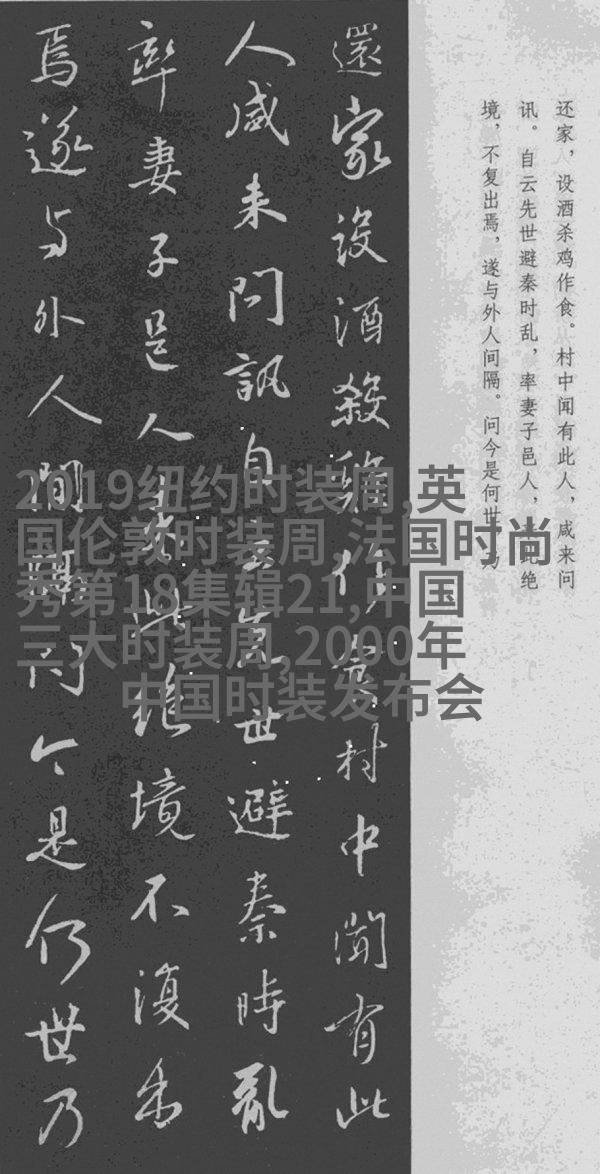 还家，设酒杀鸡作食。村中闻有此人，咸来问
讯。自云先世避秦时乱，率妻子邑人，此绝
境，不复出焉，遂与外人间隔。问今是何世
還家設酒殺雞作食村中聞有此
人咸来問訊自云先世避秦時亂
率妻子邑人来此絶境不復出
焉遂与外人間隔問今是何世乃
2019纽约时装周,英
国伦敦时装周,法国时尚
秀第18集辑21,中国
三大时装周,2000年
中国时装发布会